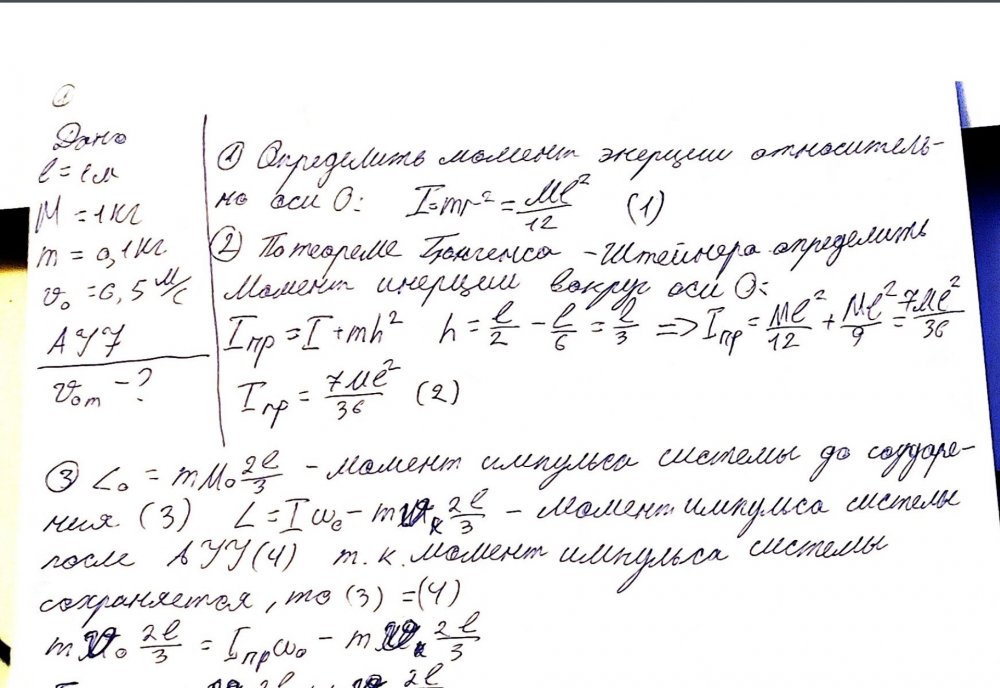 ①
Дано
l = 1м
M = 1 кг
m = 0,1 кг
v₀ = 6,5 м/с
АУУ
v₀т - ?
① Определить момент энерции относитель-
но оси О: I = mr² = Ml²/12 (1)
② По теореме Гюйгенса - Штейнера определить
момент инерции вокруг оси О:
Iпр = I + mh² h = l/2 - l/6 = l/3 => Iпр = Ml²/12 + Ml²/9 = 7Ml²/36
Iпр = 7Ml²/36 (2)
③ L₀ = mu₀ 2l/3 - момент импульса системы до соударе-
ния (3) L = Iω₀ - mvₖ 2l/3 - момент импульса системы
после АУУ (4) т.к. момент импульса системы
сохраняется, то (3) = (4)
mv₀ 2l/3 = Iпрω₀ - mvₖ 2l/3